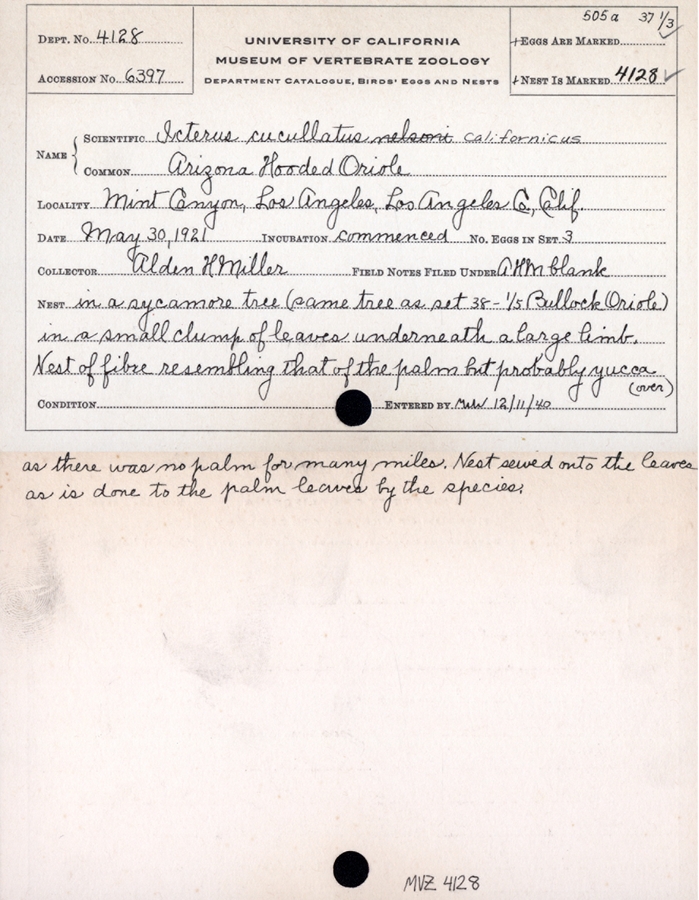 505a 37 1/3
Dept. No. 4128
Accession No. 6397
UNIVERSITY OF CALIFORNIA
MUSEUM OF VERTEBRATE ZOOLOGY
Department Catalogue, Birds' Eggs and Nests
+Eggs Are Marked ✓
+Nest Is Marked 4128 ✓
Name
Scientific Icterus cucullatus nelsoni californicus
Common Arizona Hooded Oriole
Locality Mint Canyon, Los Angeles, Los Angeles Co, Calif
Date May 30, 1921 Incubation commenced No. Eggs in Set 3
Collector Alden H Miller Field Notes Filed Under AHM blank
Nest in a sycamore tree (same tree as set 38-1/5 Bullock Oriole)
in a small clump of leaves underneath a large limb.
Nest of fibre resembling that of the palm but probably yucca
(over)
Condition Entered by 12/11/40
as there was no palm for many miles. Nest sewed onto the leaves
as is done to the palm leaves by the species.
MVZ 4128